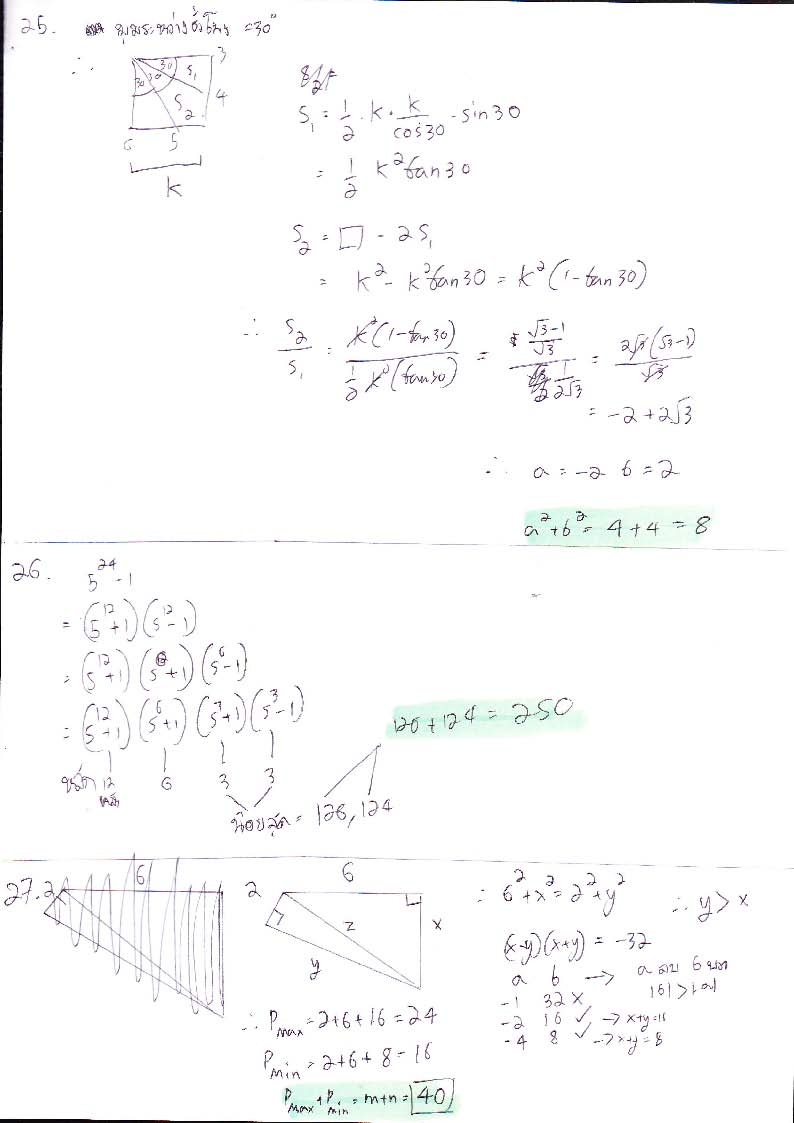 25. มุมระหว่างชั่วโมง = 30°
∴
30 30 30 S₁ S₂ 3 4 5 6
k
S₁ = 1/2 · k · k/cos30 · sin30
= 1/2 k² tan30
S₂ = □ - 2S₁
= k² - k² tan30 = k² (1 - tan30)
∴ S₂/S₁ = k²(1-tan30) / 1/2 k²(tan30) = (√3-1)/√3 / 1/2√3 = 2√3(√3-1)/√3
= -2 + 2√3
∴ a = -2 b = 2
a² + b² = 4 + 4 = 8
26. 5²⁴ - 1
= (5¹² + 1) (5¹² - 1)
= (5¹² + 1) (5⁶ + 1) (5⁶ - 1)
= (5¹² + 1) (5⁶ + 1) (5³ + 1) (5³ - 1)
12 6 3 3
หลัก
น้อยสุด = 126, 124
126 + 124 = 250
27. 2 6
2 6 x y z
∴ 6² + x² = 2² + y² ∴ y > x
(x-y)(x+y) = -32
a b → a ลบ b บวก
|b| > |a|
-1 32 ×
-2 16 ✓ → x+y=16
-4 8 ✓ → x+y = 8
∴ Pmax = 2 + 6 + 16 = 24
Pmin = 2 + 6 + 8 = 16
Pmax + Pmin = m+n = 40